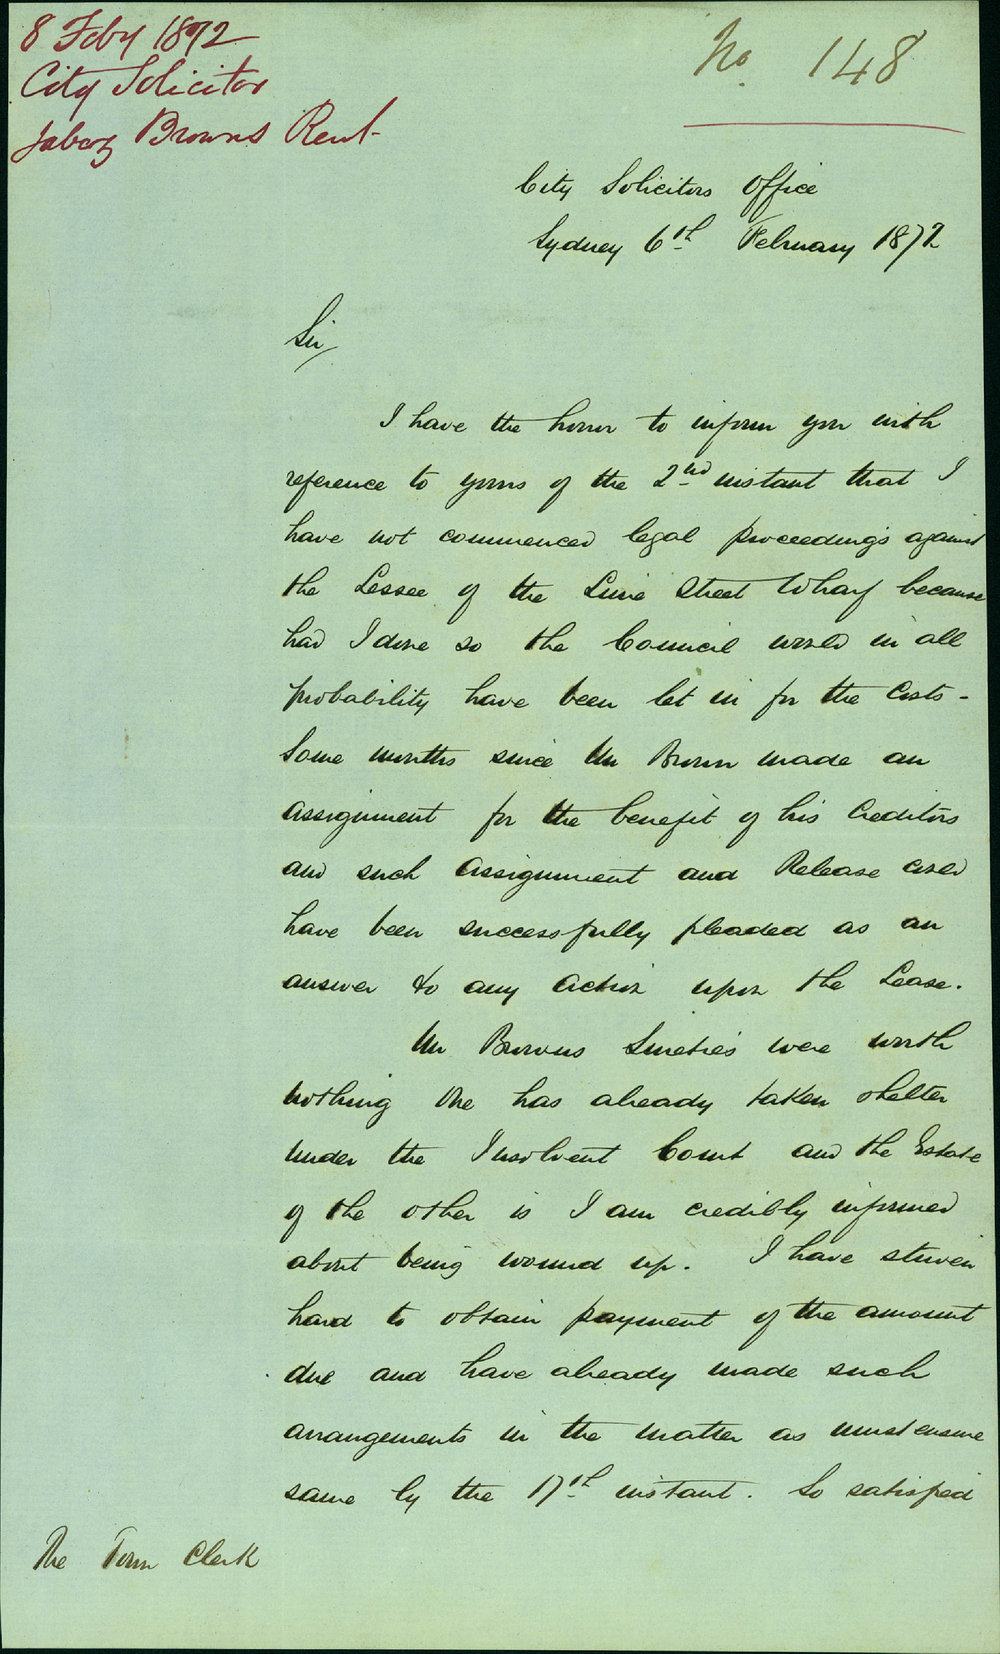 8 Feby 1872
City Solicitor
Jabez Browns Rent
No. 148
City Solicitors Office
Sydney 6th February 1872
Sir,
I have the honor to inform you with
reference to yours of the 2nd instant that I
have not commenced legal proceedings against
the Lessee of the Lime Street Wharf because
had I done so the Council would in all
probability have been let in for the Costs -
Some months since Mr Brown made an
Assignment for the benefit of his Creditors
and such Assignment and Release could
have been successfully pleaded as an
answer to any Action upon the Lease.
Mr Browns Sureties were worth
nothing One has already taken shelter
under the Insolvent Court and the Estate
of the other is I am credibly informed
about being wound up. I have striven
hard to obtain payment of the amount
due and have already made such
arrangements in the matter as must ensure
same by the 17th instant. So satisfied
The Town Clerk